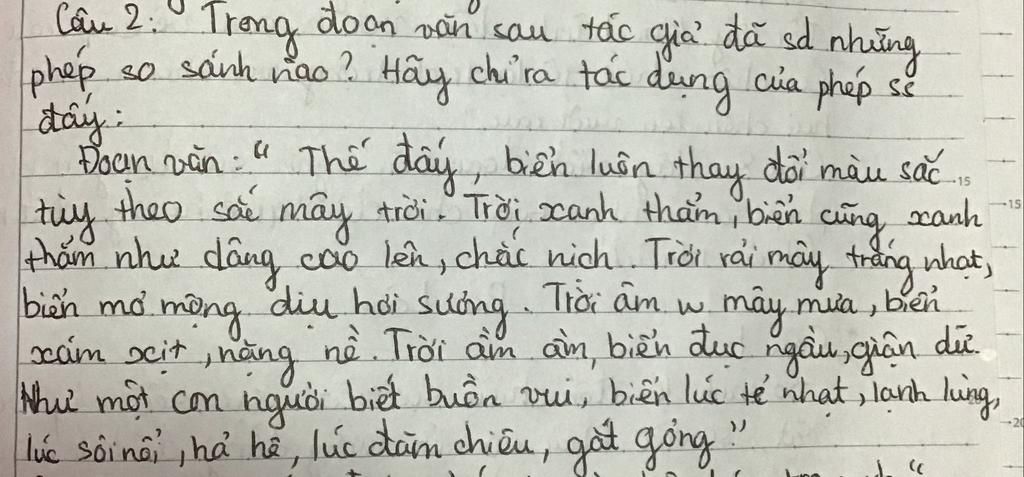 Câu 2: Trong đoạn văn sau tác giả đã sd những
phép so sánh nào? Hãy chỉ ra tác dụng của phép ss
đấy:
Đoạn văn: " Thế đấy, biển luôn thay đổi màu sắc
tùy theo sắc mây trời. Trời xanh thẳm, biển cũng xanh
thẳm như dâng cao lên, chắc nịch. Trời rải mây trắng nhạt,
biển mơ màng dịu hơi sương. Trời âm u mây mưa, biển
xám xịt, nặng nề. Trời ầm ầm, biển đục ngầu, giận dữ.
Như một con người biết buồn vui, biển lúc tẻ nhạt, lạnh lùng,
lúc sôi nổi, hả hê, lúc đăm chiêu, gắt gỏng "